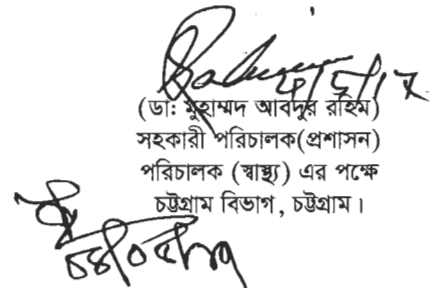 (ডাঃ মুহাম্মদ আবদুর রহিম)
সহকারী পরিচালক(প্রশাসন)
পরিচালক (স্বাস্থ্য) এর পক্ষে
চট্টগ্রাম বিভাগ, চট্টগ্রাম।